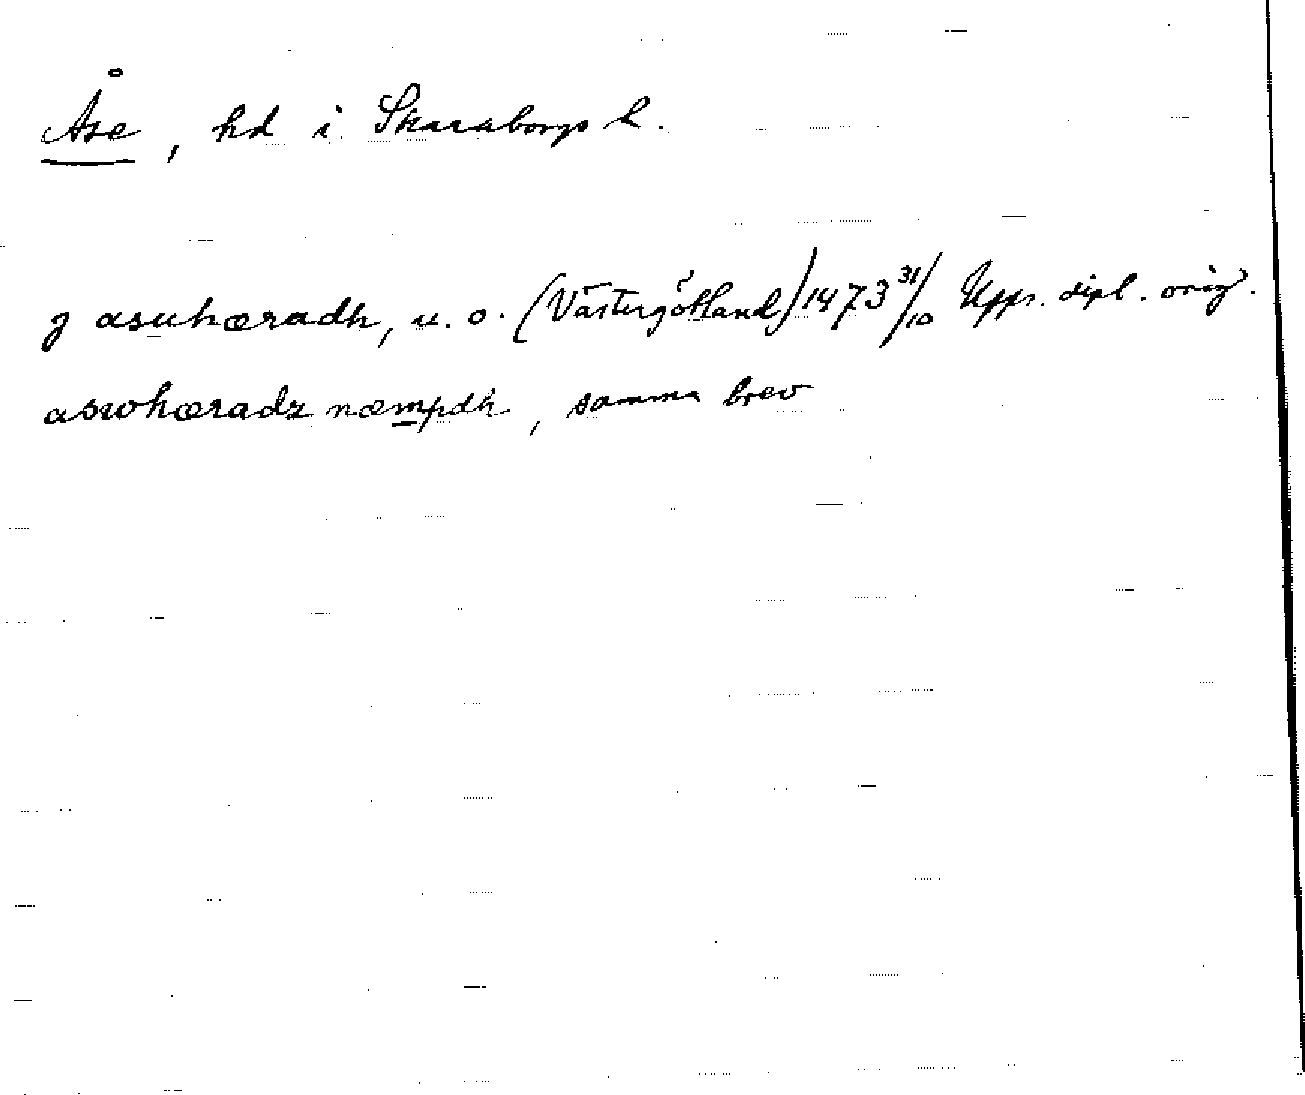 Åse, hd i Skaraborgs l.
j asuhæradh, u. o. (Västergötland) 1473 31/10 Upps. dipl. orig.
aswhæradz næmpdh, samma brev